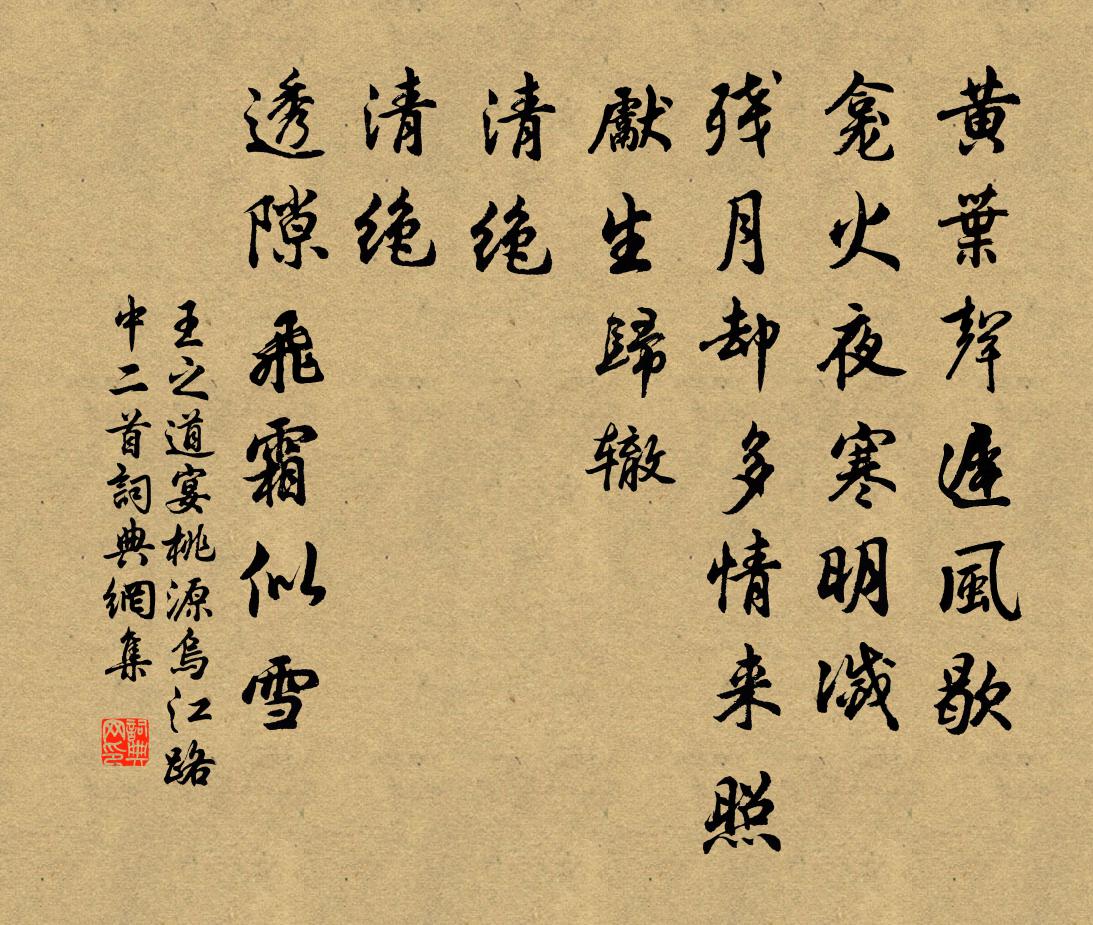 黄葉聲遲風歇
龕火夜寒明滅
残月却多情来照
獻生歸辙
清绝
清绝
透隙飛霜似雪
王之道宴桃源烏江路
中二首詞典網集
詞典
网印